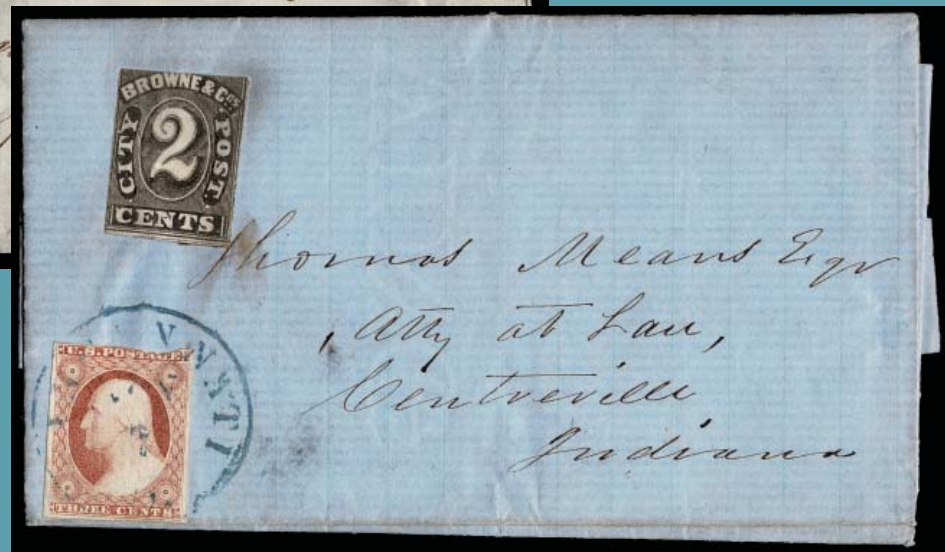 BROWNE & Co's
CITY POST
2
CENTS
Thomas Means Esqr
Atty at Law,
Centreville
Indiana
U.S. POSTAGE
THREE CENTS